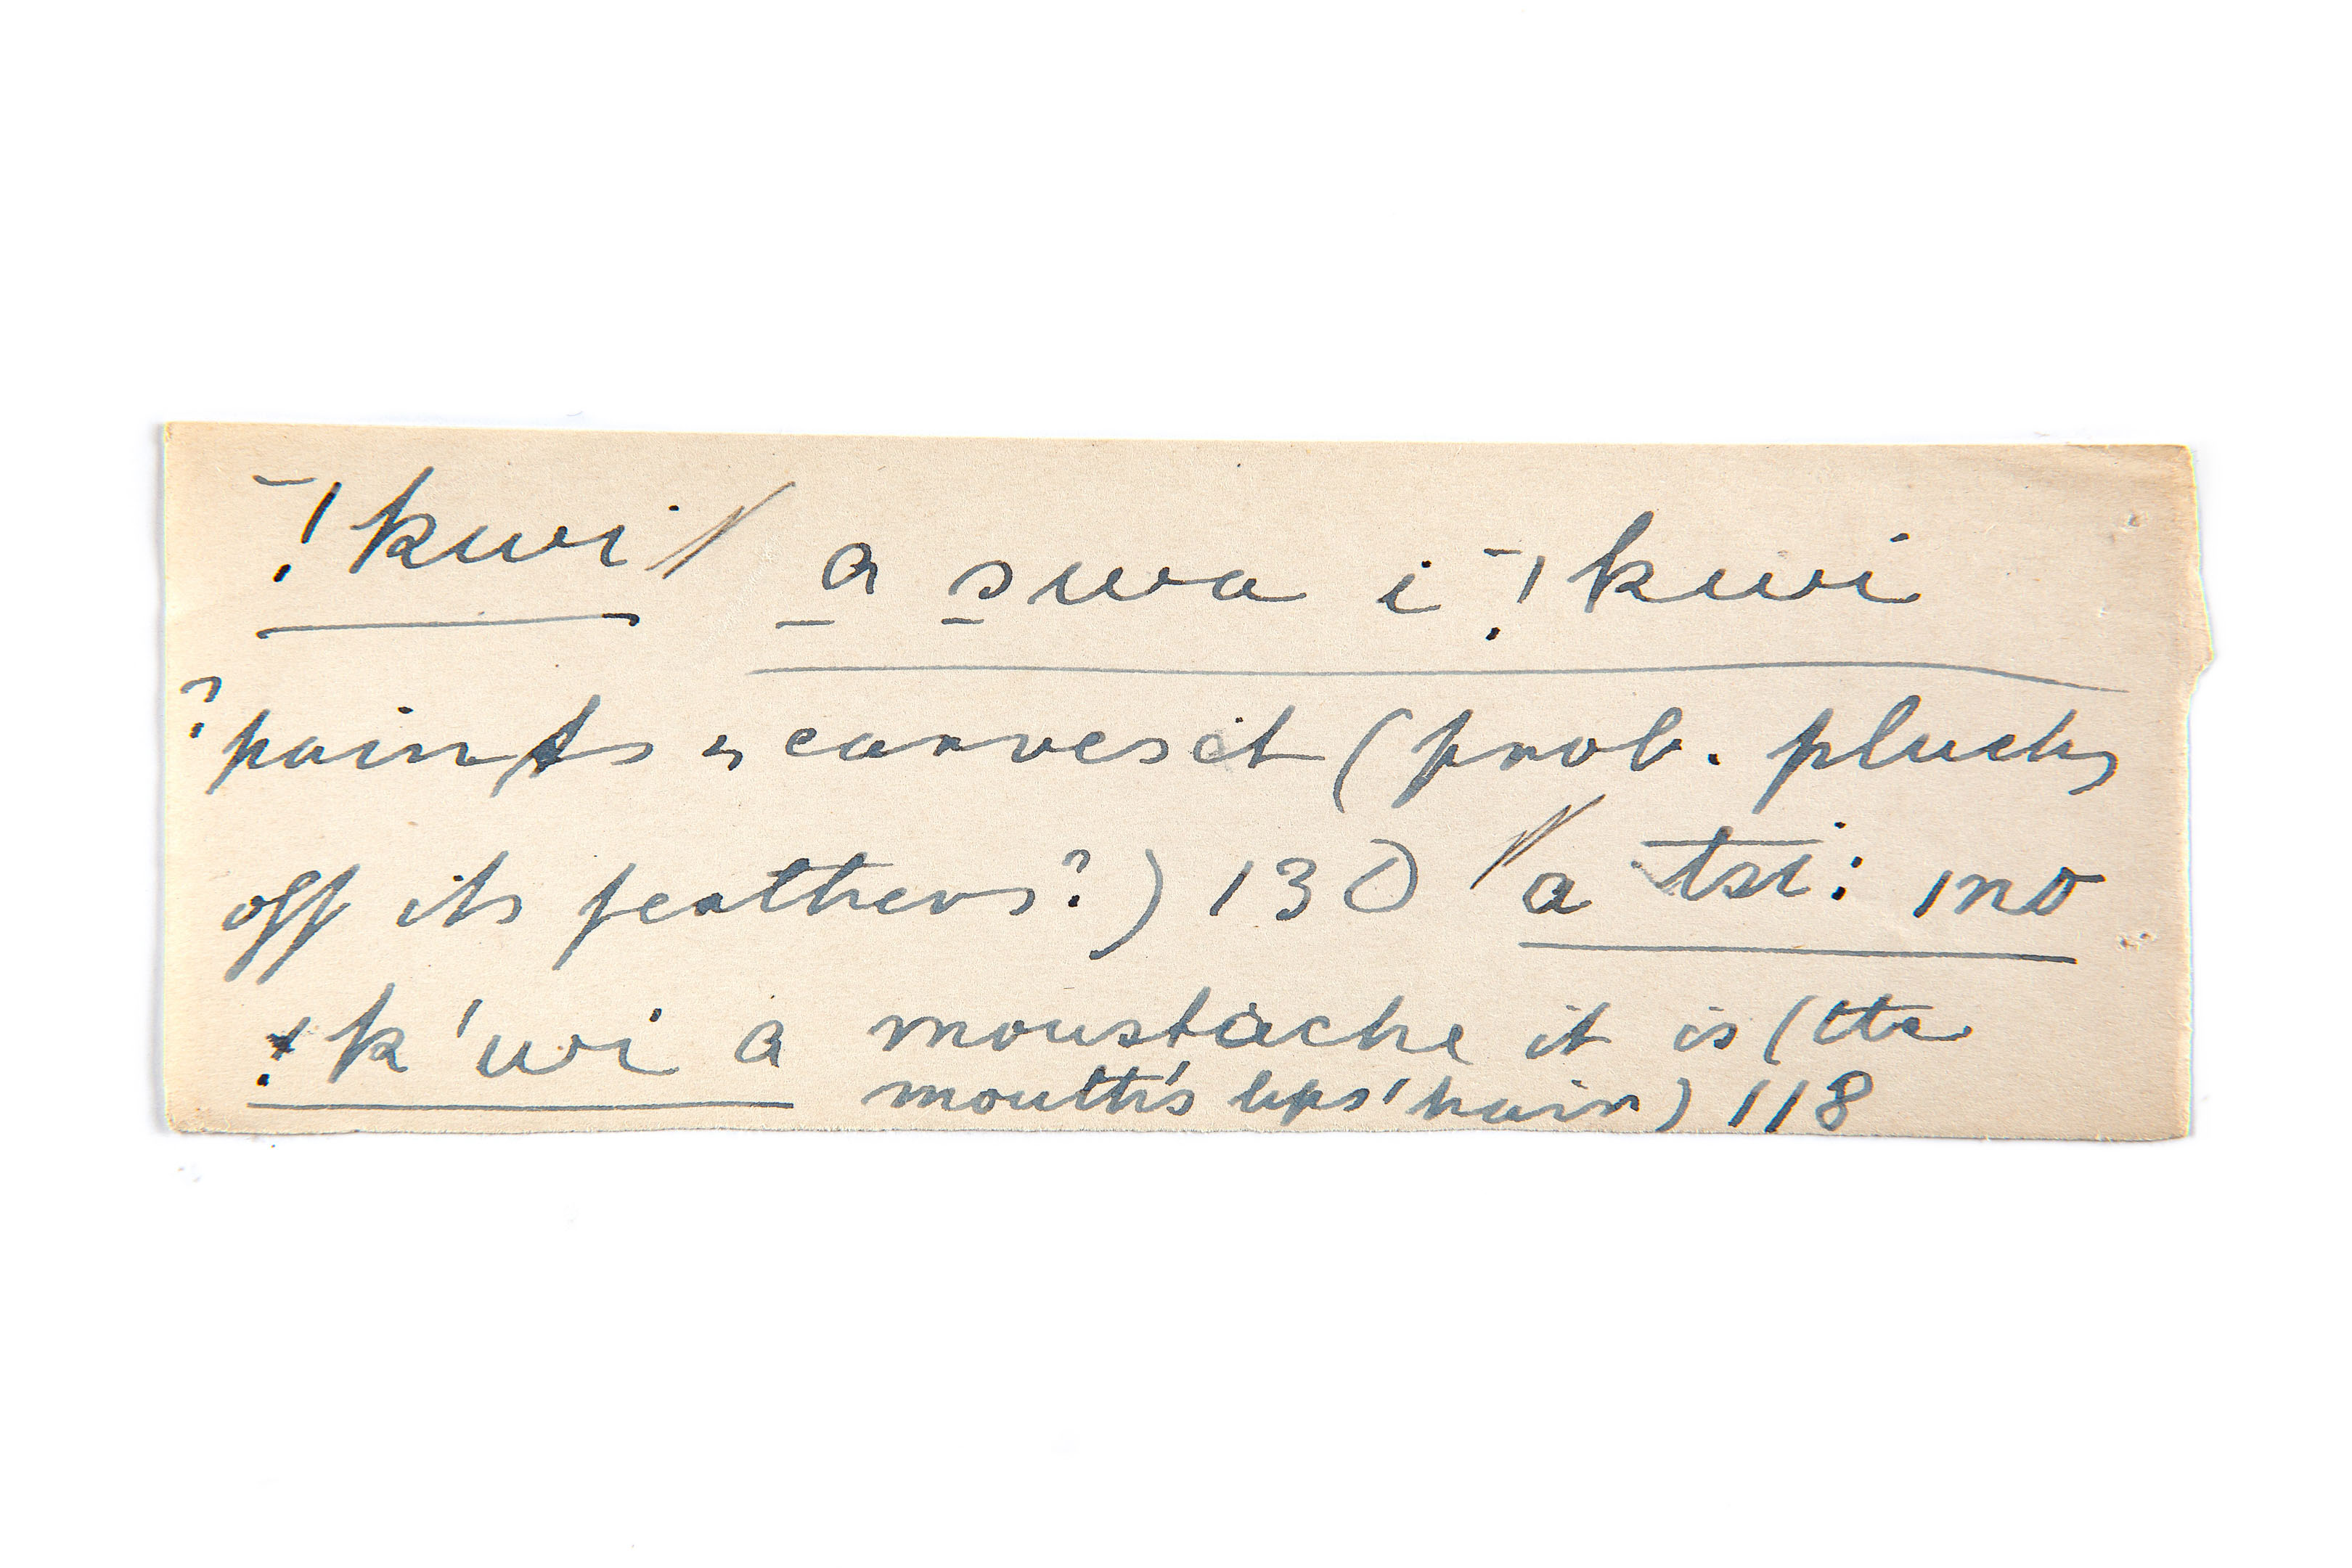 !kwi // a swa i !kwi
? paints & carves it (prob. plucks
off its feathers?) 130 // a tsi: ino
!k'wi a moustache it is (the
mouth's lips' hair) 118